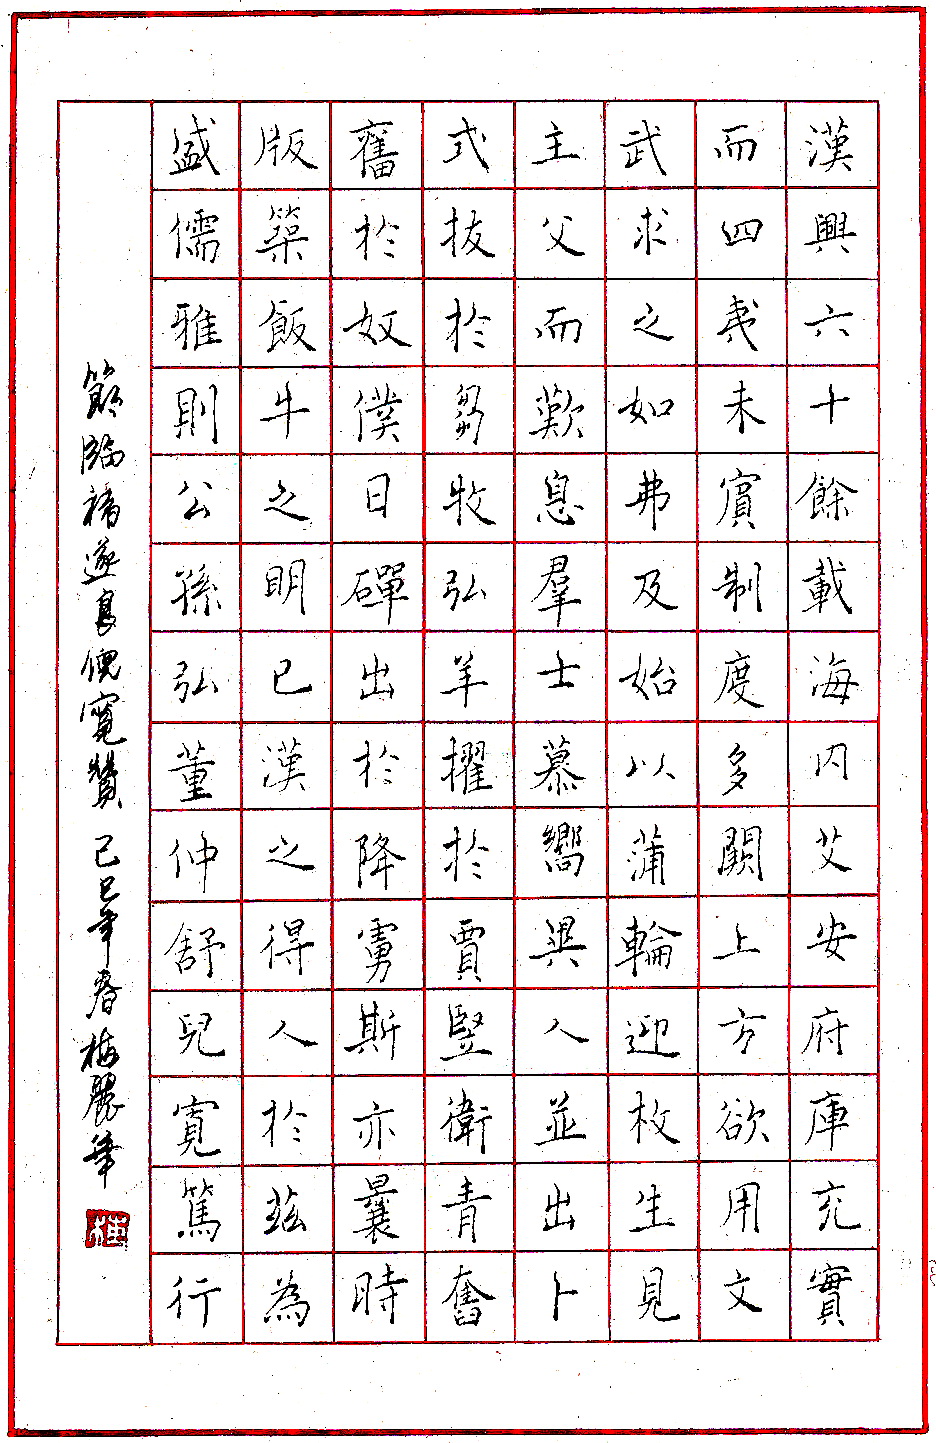 漢興六十餘載海内艾安府庫充實
而四夷未賔制度多闕上方欲用文
武求之如弗及始以蒲輪迎枚生見
主父而歎息羣士慕嚮異人並出卜
式拔於芻牧弘羊擢於賈豎衛青奮
舊於奴僕日磾出於降虜斯亦曩時
版築飯牛之明已漢之得人於茲為
盛儒雅則公孫弘董仲舒兒寬篤行
節臨褚遂良倪寬贊己巳年春梅